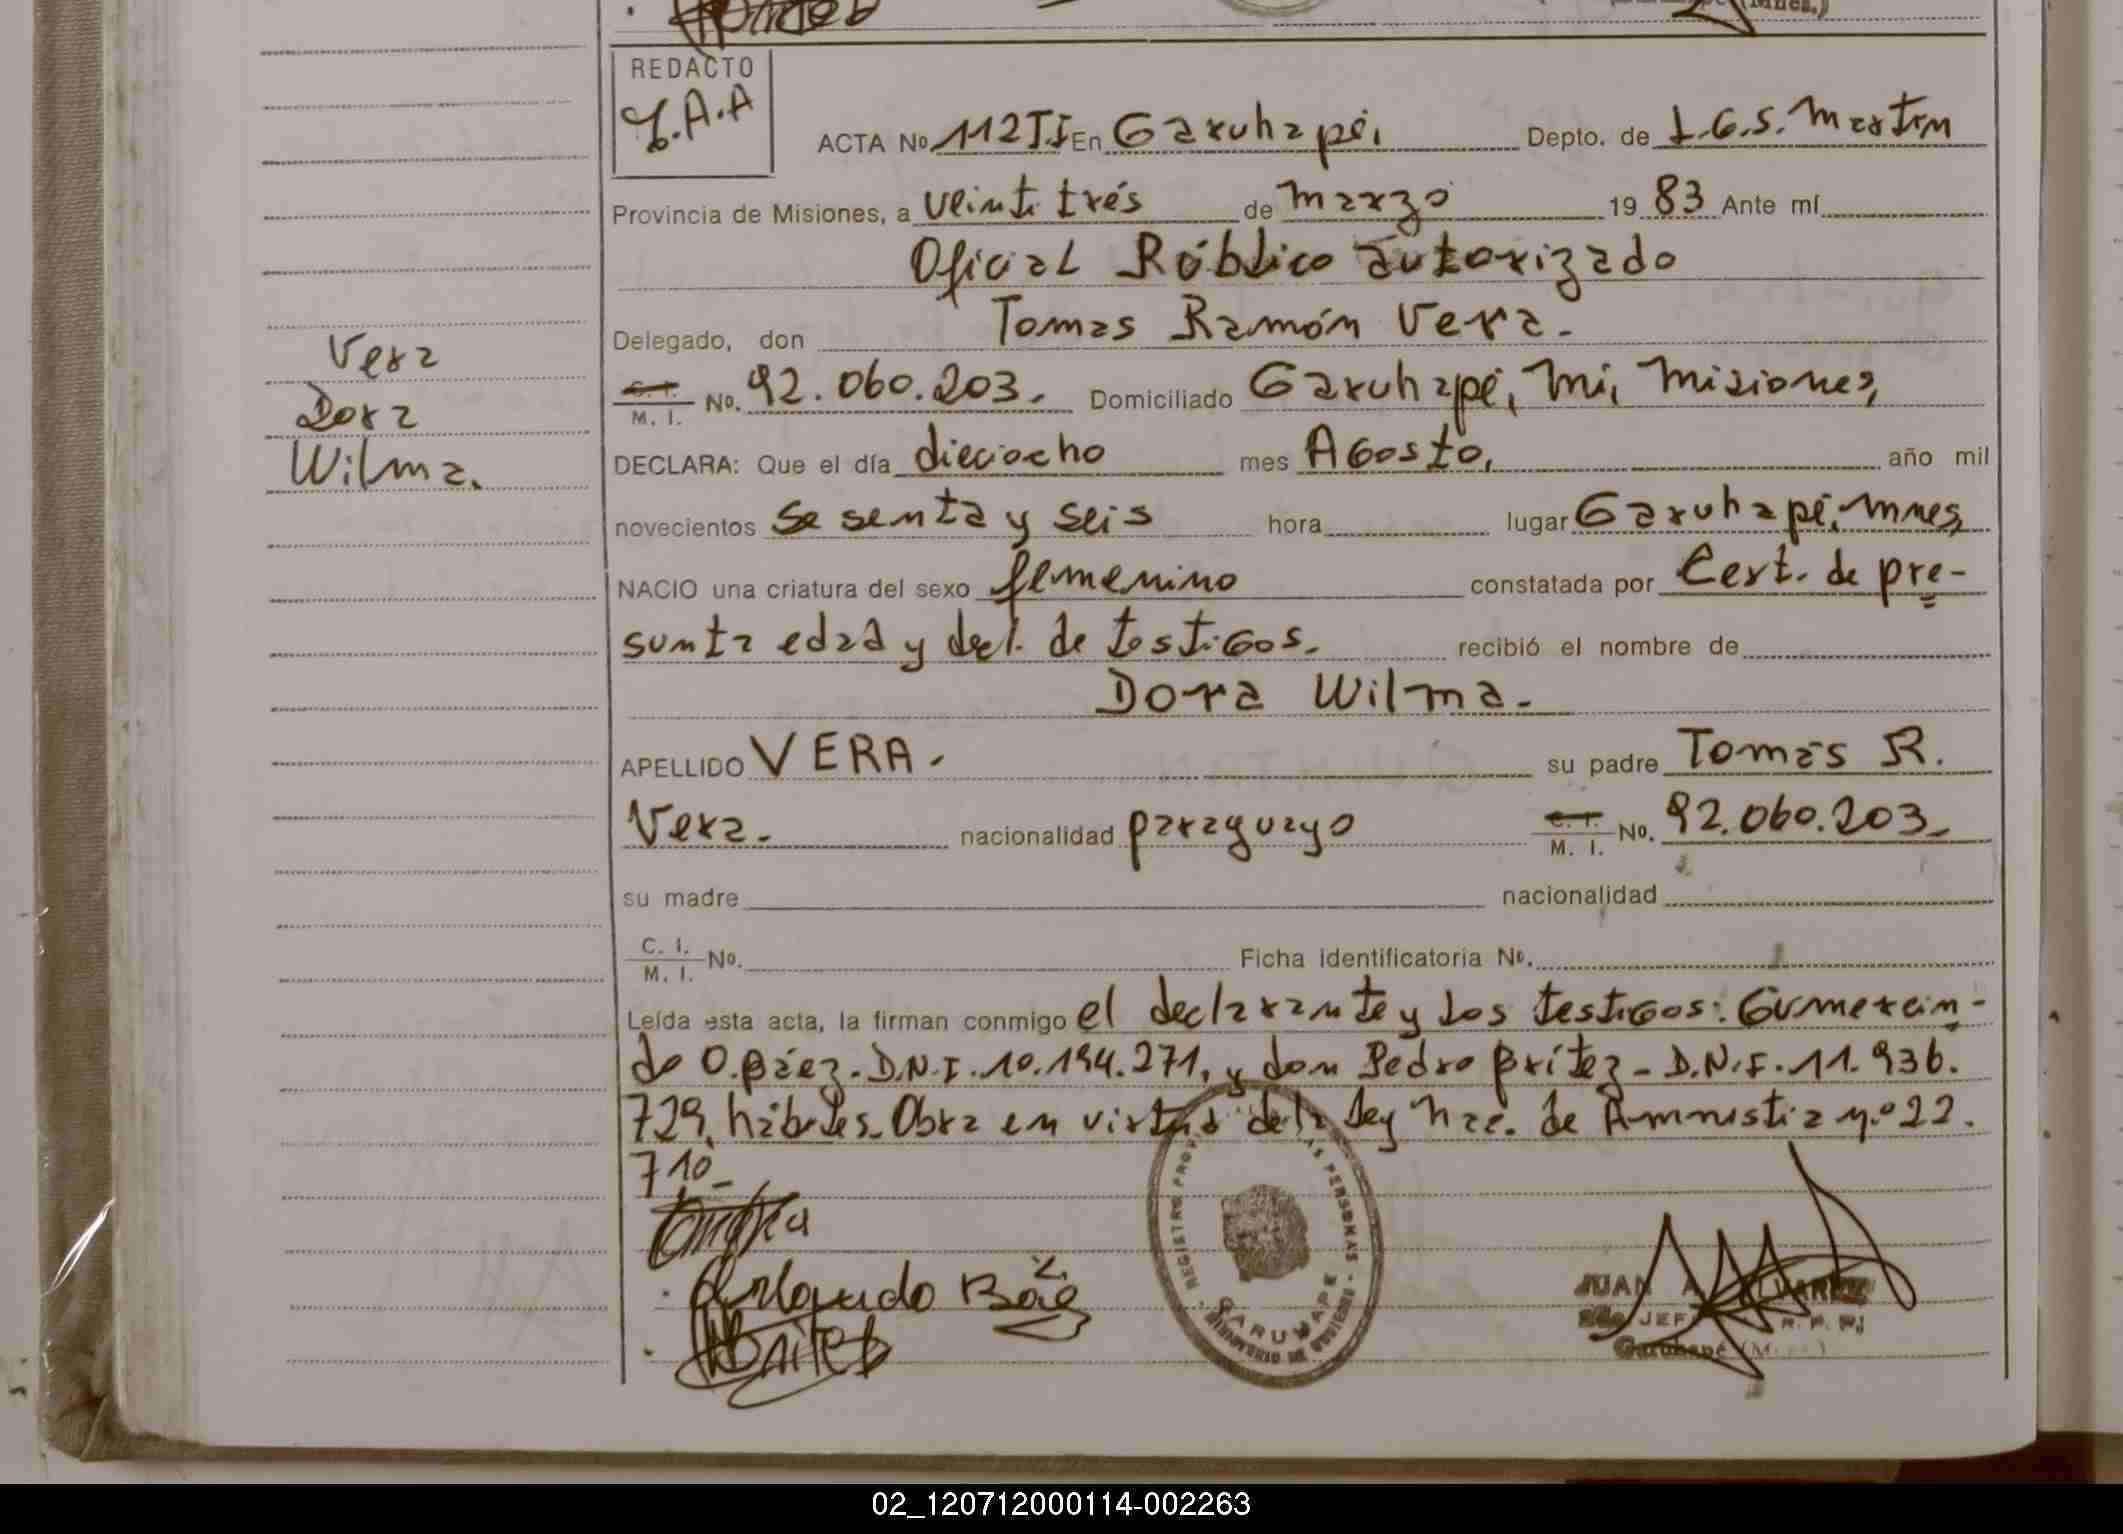 REDACTO
J.A.A
ACTA No 112TI En Garuhapé, Depto. de L.G.S. Martín
Provincia de Misiones, a veintitrés de marzo 19 83 Ante mí
Oficial Público autorizado
Delegado, don Tomas Ramón Vera.
C. I. / M. I. No. 92.060.203. Domiciliado Garuhapé, Mi, Misiones,
Vera
Dora
Wilma.
DECLARA: Que el día dieciocho mes Agosto, año mil
novecientos sesenta y seis hora lugar Garuhapé, Mnes,
NACIO una criatura del sexo femenino constatada por Cert. de pre-
sunta edad y decl. de testigos. recibió el nombre de
Dora Wilma.
APELLIDO VERA. su padre Tomás R.
Vera. nacionalidad paraguayo C. I. / M. I. No. 92.060.203.
su madre nacionalidad
C. I. / M. I. No. Ficha identificatoria No.
Leída esta acta, la firman conmigo el declarante y los testigos: Gumercin-
do O. Báez. D.N.I. 10.194.271, y don Pedro Brítez - D.N.I. 11.936.
729, hábiles. Obra en virtud de la Ley Nac. de Amnistia n.º 22.
710_
Báez
Britez
GARUHAPE
JUAN A.
JEF R. P. P.
Garuhapé
02_120712000114-002263